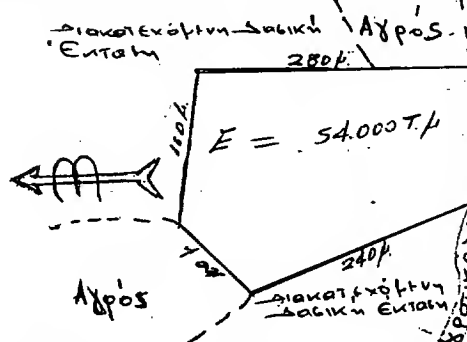 Διακατεχόμενη Δασική
Έκταση
Αγρός
280μ.
160μ
E = 54.000 τ.μ
240μ
Αγρός
Διακατεχόμενη
Δασική Έκταση